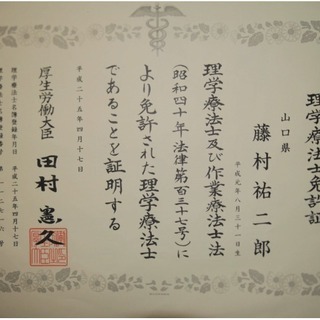 理学療法士免許証
山口県
藤村祐二郎
平成元年八月三十一日生
理学療法士及び作業療法士法
(昭和四十年法律第百三十七号)に
より免許された理学療法士
であることを証明する
平成二十五年四月十七日
厚生労働大臣 田村憲久
理学療法士名簿登録年月日 平成二十五年四月十七日